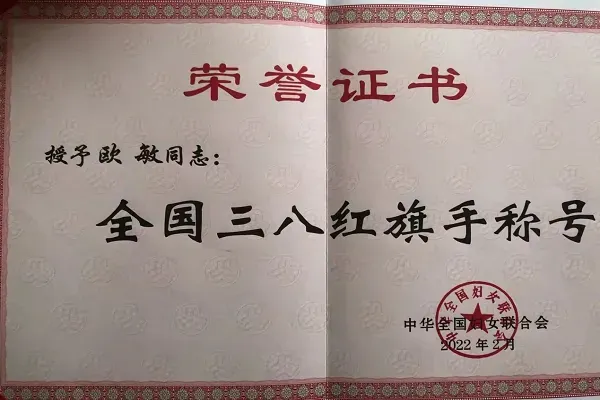 荣誉证书
授予欧 敏同志：
全国三八红旗手称号
中华全国妇女联合会
2022年2月